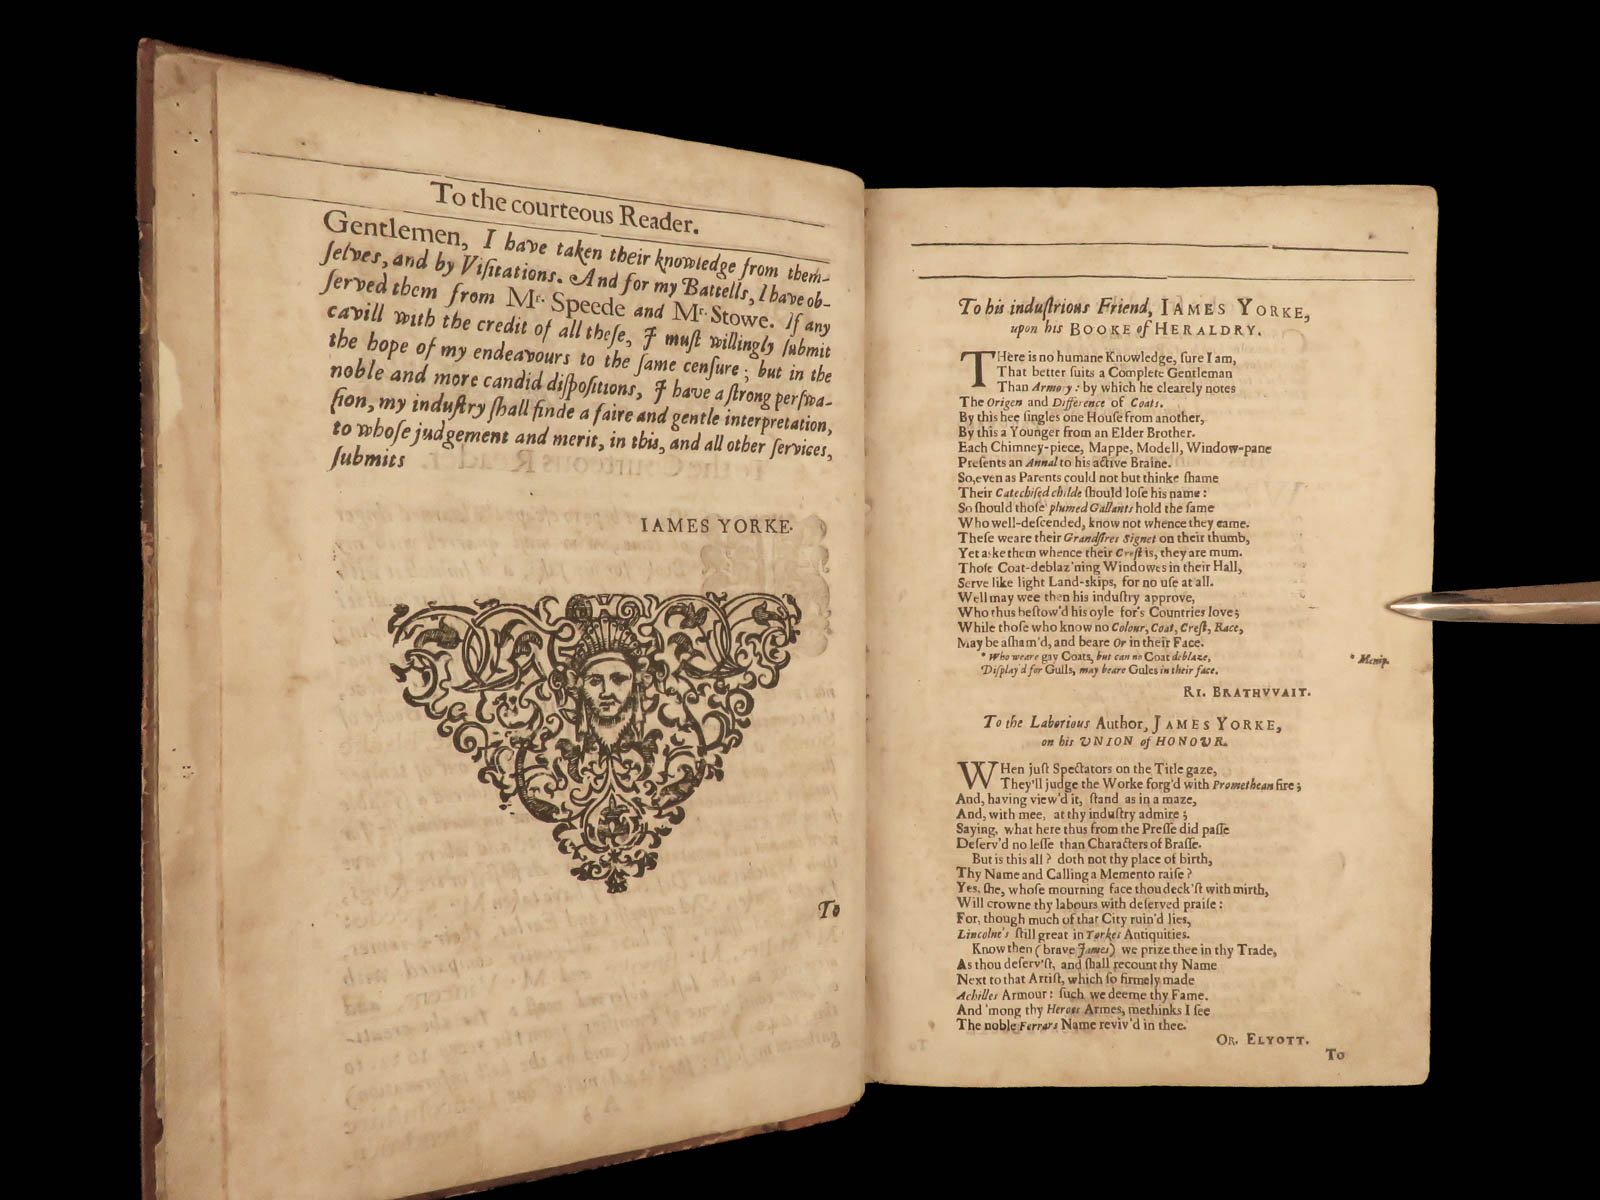 To the courteous Reader.
Gentlemen, I have taken their knowledge from them-
ſelves, and by Viſitations. And for my Battells, I have ob-
ſerved them from Mr. Speede and Mr. Stowe. If any
cavill with the credit of all theſe, I muſt willingly ſubmit
the hope of my endeavours to the ſame cenſure; but in the
noble and more candid diſpoſitions, I have a ſtrong perſwa-
ſion, my induſtry ſhall finde a faire and gentle interpretation,
to whoſe judgement and merit, in this, and all other ſervices,
ſubmits
IAMES YORKE.
To
To his induſtrious Friend, IAMES YORKE,
upon his BOOKE of HERALDRY.
THere is no humane Knowledge, ſure I am,
That better ſuits a Complete Gentleman
Than Armory: by which he clearely notes
The Origen and Difference of Coats.
By this hee ſingles one Houſe from another,
By this a Younger from an Elder Brother.
Each Chimney-piece, Mappe, Modell, Window-pane
Preſents an Annal to his active Braine.
So, even as Parents could not but thinke ſhame
Their Catechiſed childe ſhould loſe his name:
So ſhould thoſe plumed Gallants hold the ſame
Who well-deſcended, know not whence they came.
Theſe weare their Grandſires Signet on their thumb,
Yet aske them whence their Creſt is, they are mum.
Thoſe Coat-deblaz'ning Windowes in their Hall,
Serve like light Land-skips, for no uſe at all.
Well may wee then his induſtry approve,
Who thus beſtow'd his oyle for's Countries love;
While thoſe who know no Colour, Coat, Creſt, Race,
May be aſham'd, and beare Or in their Face.
* Who weare gay Coats, but can no Coat deblaze,
Diſplay'd for Gulls, may beare Gules in their face.
* Menip.
RI. BRATHVVAIT.
To the Laborious Author, JAMES YORKE,
on his UNION of HONOUR.
WHen juſt Spectators on the Title gaze,
They'll judge the Worke forg'd with Promethean fire;
And, having view'd it, ſtand as in a maze,
And, with mee, at thy induſtry admire;
Saying, what here thus from the Preſſe did paſſe
Deſerv'd no leſſe than Characters of Braſſe.
But is this all? doth not thy place of birth,
Thy Name and Calling a Memento raiſe?
Yes, ſhe, whoſe mourning face thou deck'ſt with mirth,
Will crowne thy labours with deſerved praiſe:
For, though much of that City ruin'd lies,
Lincolne's ſtill great in Yorkes Antiquities.
Know then (brave James) we prize thee in thy Trade,
As thou deſerv'ſt, and ſhall recount thy Name
Next to that Artiſt, which ſo firmely made
Achilles Armour: ſuch we deeme thy Fame.
And 'mong thy Heroes Armes, methinks I ſee
The noble Ferrars Name reviv'd in thee.
OR. ELYOTT.
To